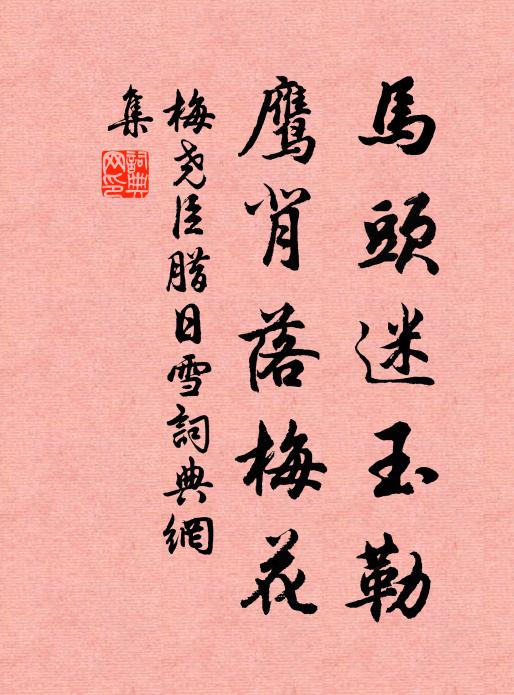 馬頭迷玉勒
鷹背落梅花
梅尧臣腊日雪詞典網
集
詞典網印